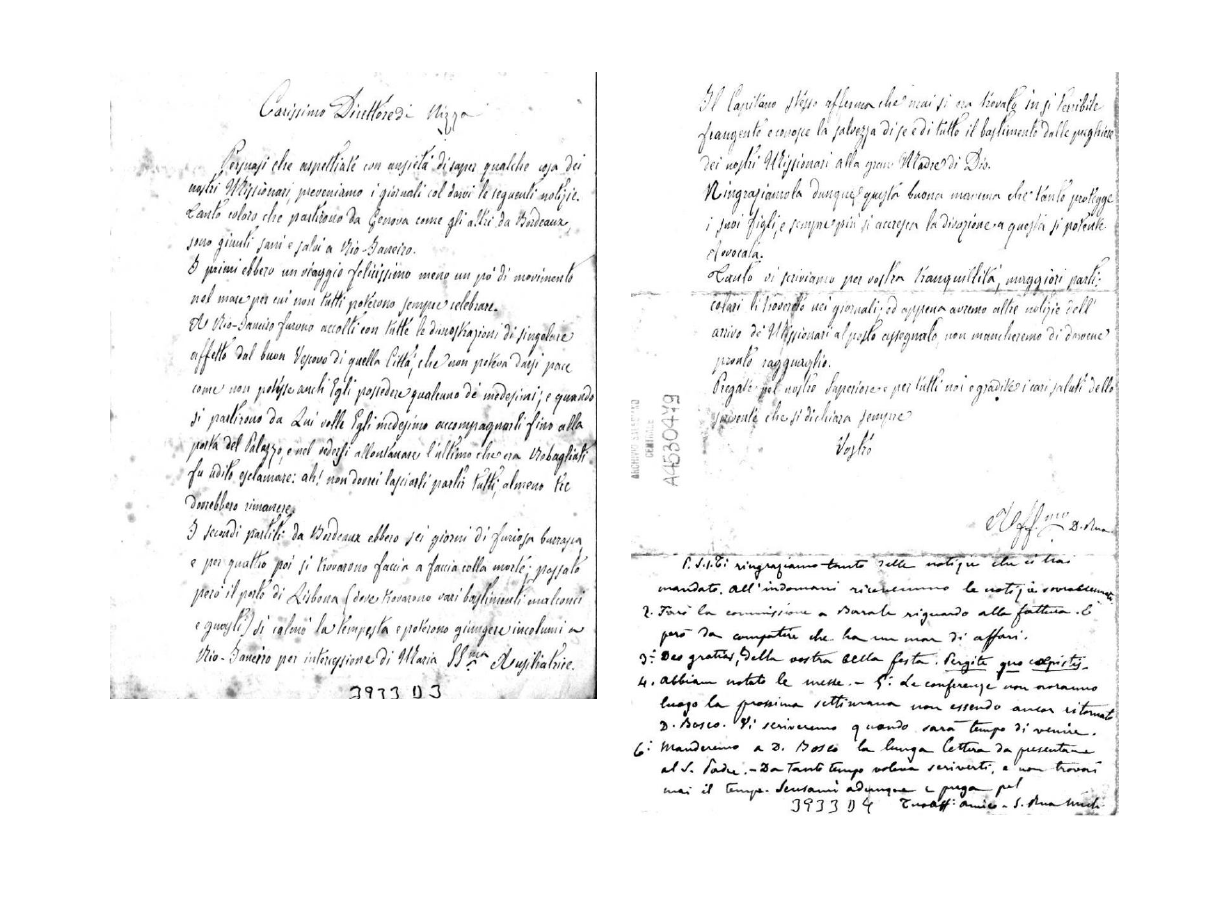 Carissimo Direttore di Nizza
Persuasi che aspettiate con ansietà di saper qualche cosa dei
nostri Missionari, preveniamo i giornali col darvi le seguenti notizie.
Tanto coloro che partirono da Genova come gli altri da Bordeaux,
sono giunti sani e salvi a Rio-Janeiro.
I primi ebbero un viaggio felicissimo meno un pò di movimento
nel mare per cui non tutti poterono sempre celebrare.
A Rio-Janeiro furono accolti con tutte le dimostrazioni di singolare
affetto dal buon Vescovo di quella Città, che non poteva darsi pace
come non potesse anch'Egli possedere qualcuno de' medesimi; e quando
si partirono da Lui volle Egli medesimo accompagnarli fino alla
porta del Palazzo, e nel vedersi allontanare l'ultimo che era Rabagliati
fu udito esclamare: ah! non dovrei lasciarli partir tutti, almeno tre
dovrebbero rimanere.
I secondi partiti da Bordeaux ebbero sei giorni di furiosa burrasca
e per quattro poi si trovarono faccia a faccia colla morte; passato
però il porto di Lisbona (dove trovarono vari bastimenti malconci
e guasti) si calmò la tempesta e poterono giungere incolumi a
Rio-Janeiro per intercessione di Maria SS.ma Ausiliatrice.
3933 D 3
Il Capitano stesso afferma che mai si era trovato in sì terribile
frangente e conosce la salvezza di se e di tutto il bastimento dalle preghiere
dei nostri Missionari alla gran Madre di Dio.
Ringraziamola dunque questa buona mamma che tanto protegge
i suoi figli, e sempre più si accresca la divozione a questa sì potente
Avvocata.
Tanto vi scriviamo per vostra tranquillità, maggiori parti-
colari li troverete nei giornali; ed appena avremo altre notizie dell'
arrivo de' Missionari al posto assegnato, non mancheremo di darvene
pronto ragguaglio.
Pregate pel nostro Superiore e per tutti noi e gradite i cari saluti dello
scrivente che si dichiara sempre
Vostro
Aff.mo D. Rua
ARCHIVIO SALESIANO
CENTRALE
A4530479
P.S. 1. Ti ringraziamo tanto delle notizie che ci hai
mandato. All'indomani ricevemmo le notizie
2. Farò la commissione a Barale riguardo alla fattura. È
però da compatire che ha un mar di affari.
3.° Deo gratias, della vostra bella festa. Pergite quo coepistis.
4. Abbiam notato le messe. - 5.° Le conferenze non avranno
luogo la prossima settimana non essendo ancor ritornato
D. Bosco. Vi scriveremo quando sarà tempo di venire.
6.° Manderemo a D. Bosco la lunga lettera da presentare
al S. Padre. - Da tanto tempo voleva scriverti, e non trovai
mai il tempo. Scusami adunque e prega pel
3933 D 4 Tuo aff. amico - S. Rua Mich